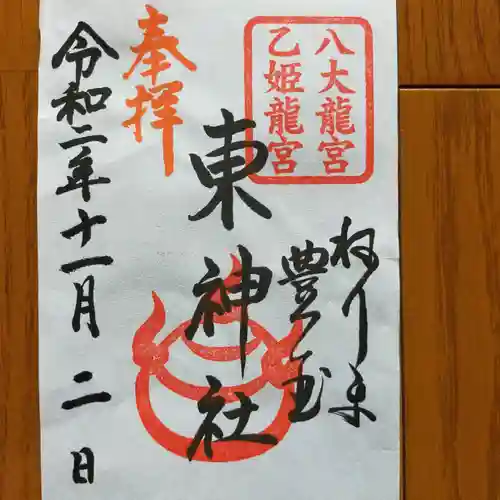 八大龍宮
乙姫龍宮
ねりま
豊玉
東神社
奉拝
令和二年十一月二日